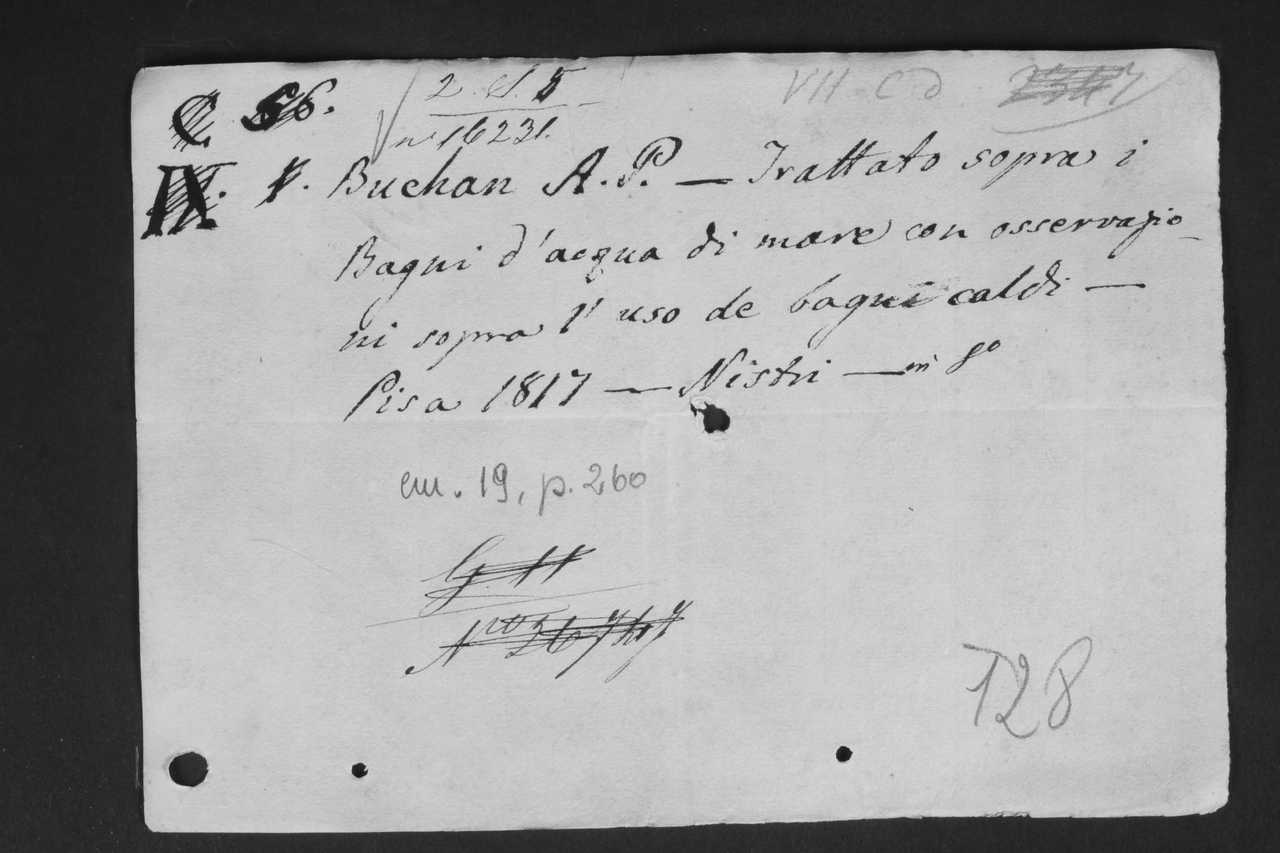 VII C d
n° 16231.
Buchan A. P. — Trattato sopra i
Bagni d'acqua di mare con osservazio-
ni sopra l'uso de bagni caldi —
Pisa 1817 — Nistri — in 8°
em. 19, p. 260
G. 11
N.ro
128